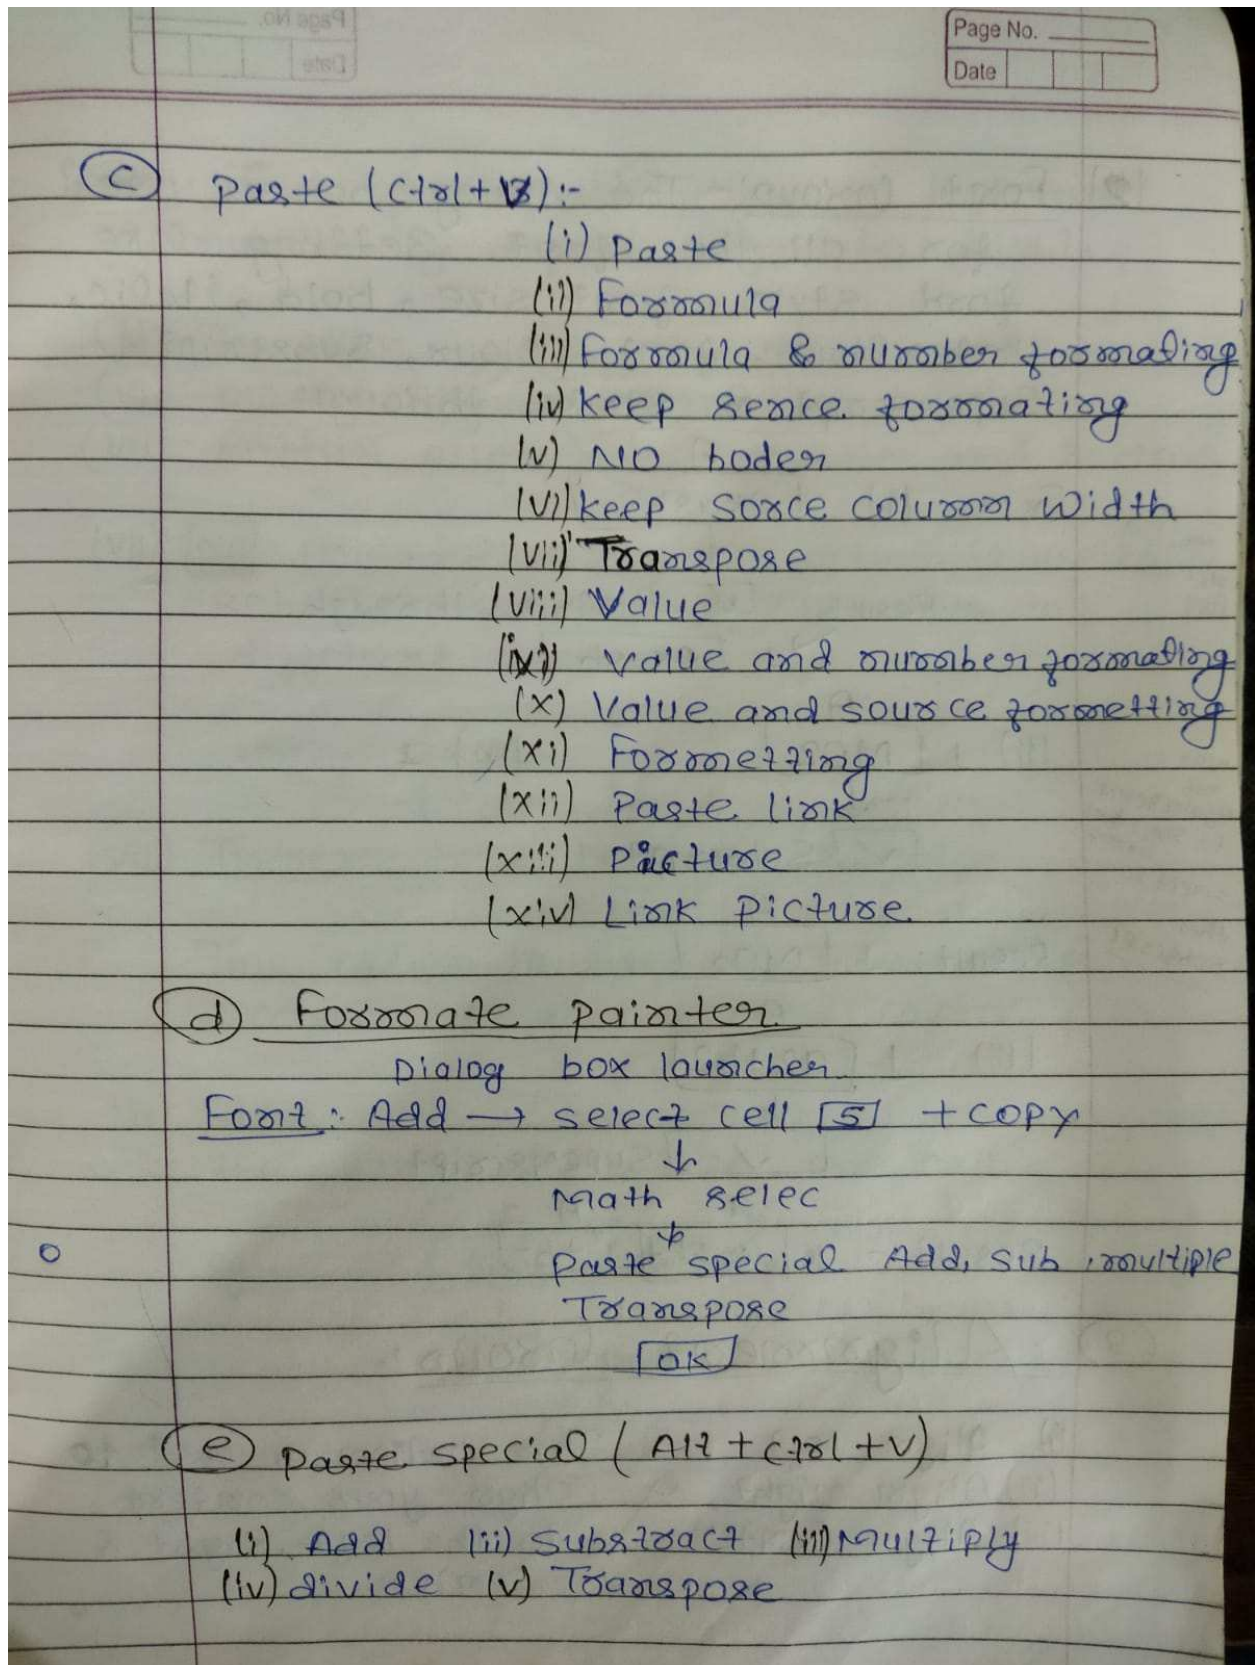 Page No.
Date
(c) Paste (Ctrl+V):-
(i) Paste
(ii) Formula
(iii) Formula & number formating
(iv) keep sence formating
(v) NO boder
(vi) keep sorce column width
(vii) Transpose
(viii) Value
(ix) Value and number formating
(x) Value and source formetting
(xi) Formetting
(xii) Paste link
(xiii) Picture
(xiv) Link picture.
(d) Formate painter
Dialog box launcher
Font: Add → select cell [5] + copy
↓
Math selec
↓
Paste special Add, Sub, multiple
Transpose
[OK]
(e) Paste special (Alt + ctrl + V)
(i) Add (ii) Substract (iii) Multiply
(iv) divide (v) Transpose